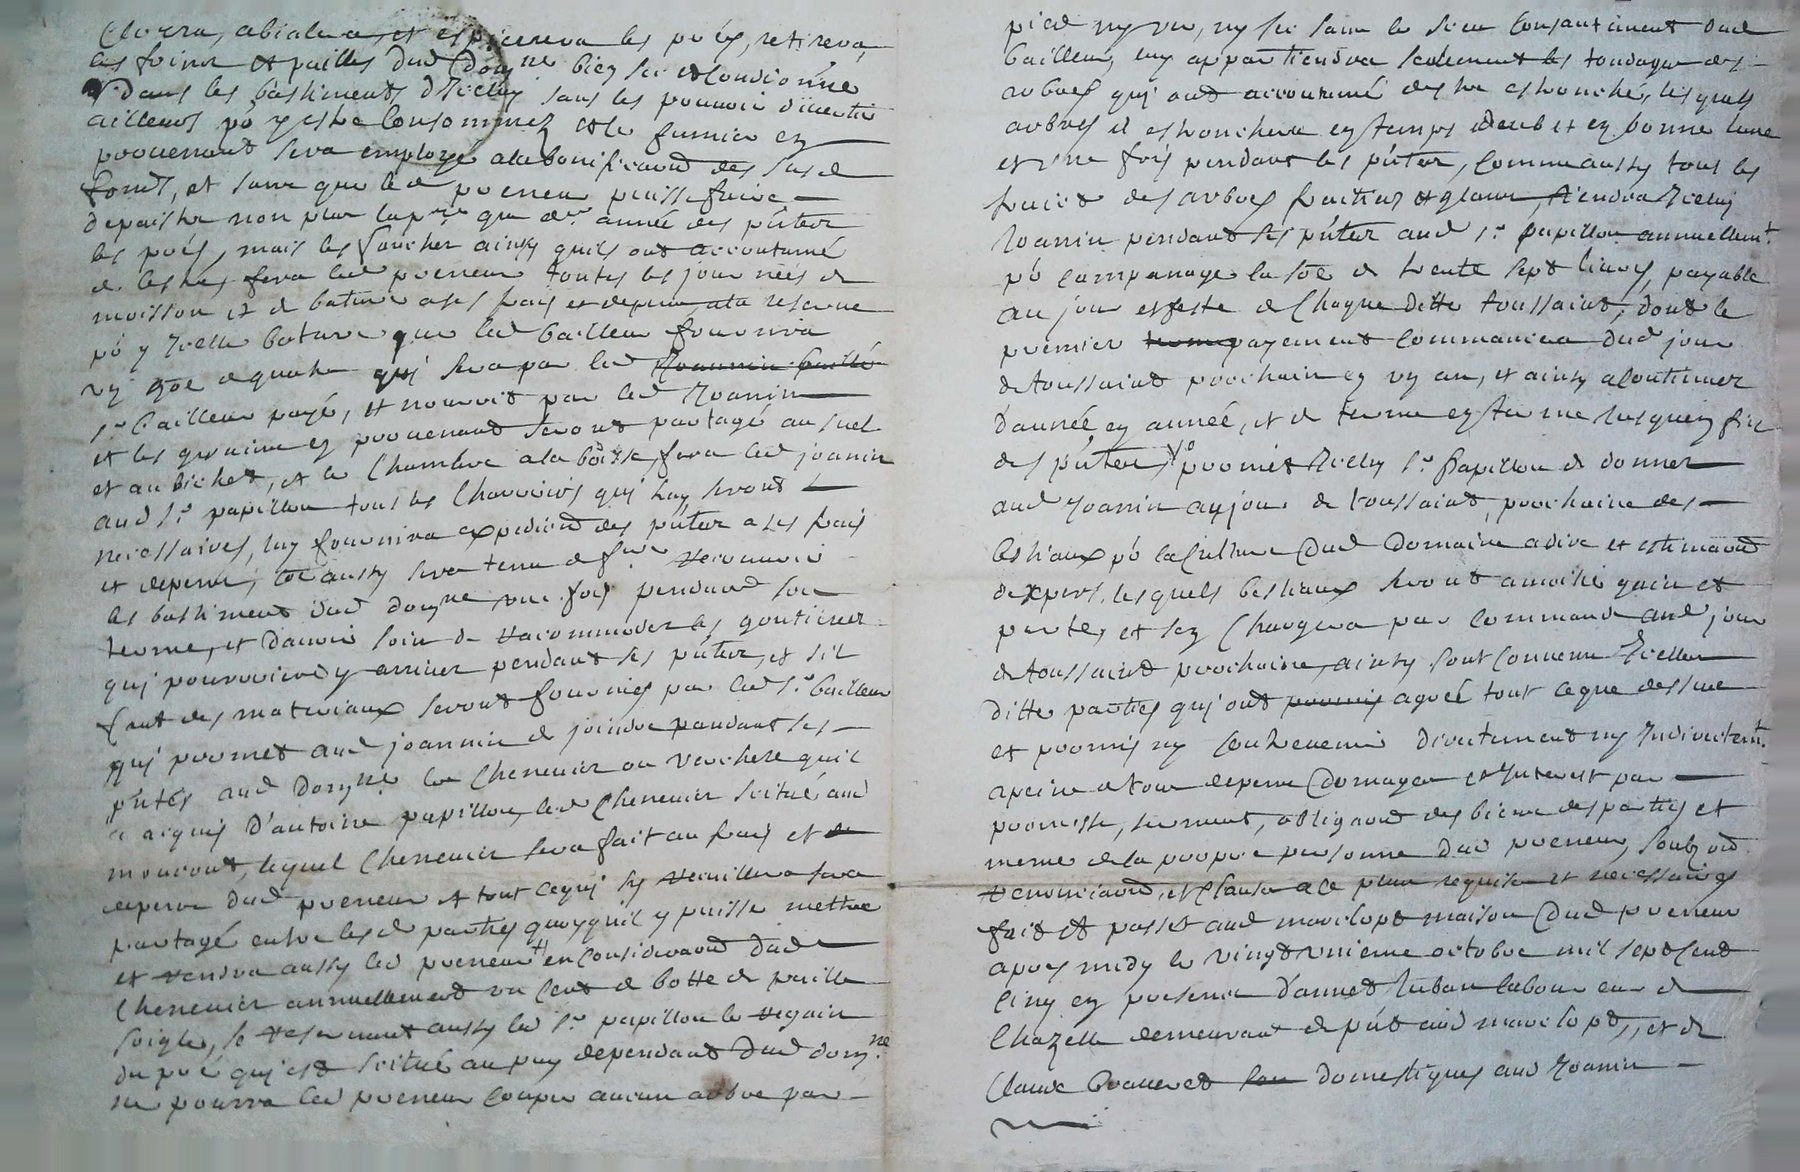 Clorra, abialera, et espierrera les prés, retirera
les foins et pailles dud dom.ne bien sec et conditionné
dans les bastiments d'Icelluy sans les pouvoir divertir
ailleurs po y estre consommez et le fumier en
provenant sera employé a la bonificaond des susd
fonds, et sans que led preneur puisse faire
depaistre non plus la p.re que der. année des p'ntes
les prés, mais les faucher ainsy quils ont accoutumé
de lestre, fera led preneur toutes les journées de
moisson et de bature a ses frais et depens a la reserve
po y Icelle bature que led bailleur fournira
qui sera par led
s.r bailleur payé, et nourrit par led Joanin
et les graines en provenant seront partagé au suel
et au bichet, et le chambre a la, fera led joanin
aud s.r papillon tous les charrois qui luy seront
necessaires, luy fournira expediond des p'ntes a ses frais
et depens, coe aussy sera tenu de f.re recouvrir
les bastiments dud dom.ne une fois pendant son
terme, et davoir soin de racommoder les goutieres
qui pourroient y arriver pendant les p'ntes, et sil
faut des materiaux seront fournies par led s.r bailleur
qui promet aud joannin de joindre pendant les
p'ntes aud dom.ne le chenevier ou verchere quil
a aquis d'antoine papillon, led chenevier scitué aud
moncont, lequel chenevier sera fait au frais et
depens dud preneur et tout ce qui sy recuillera sera
partagé entre lesd parties quoyquil y puisse mettre
et rendra aussy led preneur en consideraond dud
chenevier annuellement un cent de botte de paille
soigle, se reservant aussy led s.r papillon le regain
du pré qui est scitué au puy dependant dud dom.ne
ne pourra led preneur couper aucun arbre par
pied ny vif, ny sec sans le sceu consantiment dud
bailleur, luy appartiendra seulement les tondages des
arbres qui ont accoutumé destre estronché, lesquels
arbres il estronchera en temps deub et en bonne lune
et une fois pendant les p'ntes, comme aussy tous les
fruits des arbres fruitiers et glans, tiendra Icelluy
Joanin pendant les p'ntes aud s.r papillon annuellem.t
po companage la soe de trente sept livres, payable
au jour et feste de chaque ditte toussaint, dont le
premier payement commancera dud jour
de toussaint prochain en un an, et ainsy a continuer
d'année en année, et de terme en terme jusquen fin
des p'ntes, promet Icelluy s.r papillon de donner
aud Joanin au jour de toussaint prochaine des
bestiaux po la culture dud domaine a dire et estimaond
dexpers, lesquels bestiaux seront a moitié gain et
perte, et sen chargera par commande aud jour
de toussaint prochaine, ainsy sont convenu Icelles
ditte parties qui ont agréé tout ce que dessus
et promis ny contrevenir directement ny Indirectem.t
a peine de tous depens domages et Interest par
promesse, serment, obligaond des biens des parties et
meme de la propre personne dud preneur, soubz ond
renonciaond, et clause a ce plus requise et necessaires
fait et passé aud marclopt maison dud preneur
apres midy le vingt unieme octobre mil sept cent
cinq en presence d'annet laboureur de
Chazelle demeurant de p'nt aud marclopt, et de
Claude domestiques aud Joanin